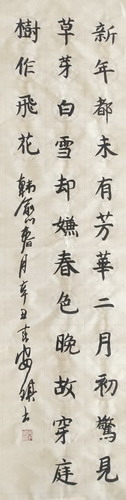 新年都未有芳華二月初驚見
草芽白雪却嫌春色晚故穿庭
樹作飛花
韓愈春月辛丑